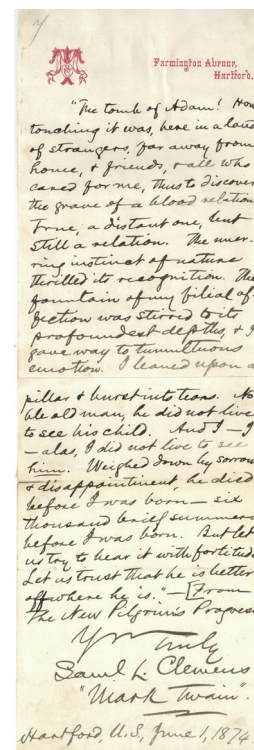 Farmington Avenue,
Hartford.
"The tomb of Adam! How
touching it was, here in a land
of strangers, far away from
home, & friends, & all who
cared for me, thus to discover
the grave of a blood relation.
True, a distant one, but
still a relation. The uner-
ring instinct of nature
thrilled its recognition. The
fountain of my filial af-
fection was stirred to its
profoundest depths, & I
gave way to tumultuous
emotion. I leaned upon a
pillar & burst into tears. No-
ble old man, he did not live
to see his child. And I – I
– alas, I did not live to see
him. Weighed down by sorrow
& disappointment, he died
before I was born — six
thousand brief summers
before I was born. But let
us try to bear it with fortitude.
Let us trust that he is better
off where he is." — [From
The New Pilgrim's Progress
Yrs Truly
Saml. L. Clemens
"Mark Twain".
Hartford, U.S., June 1, 1874.